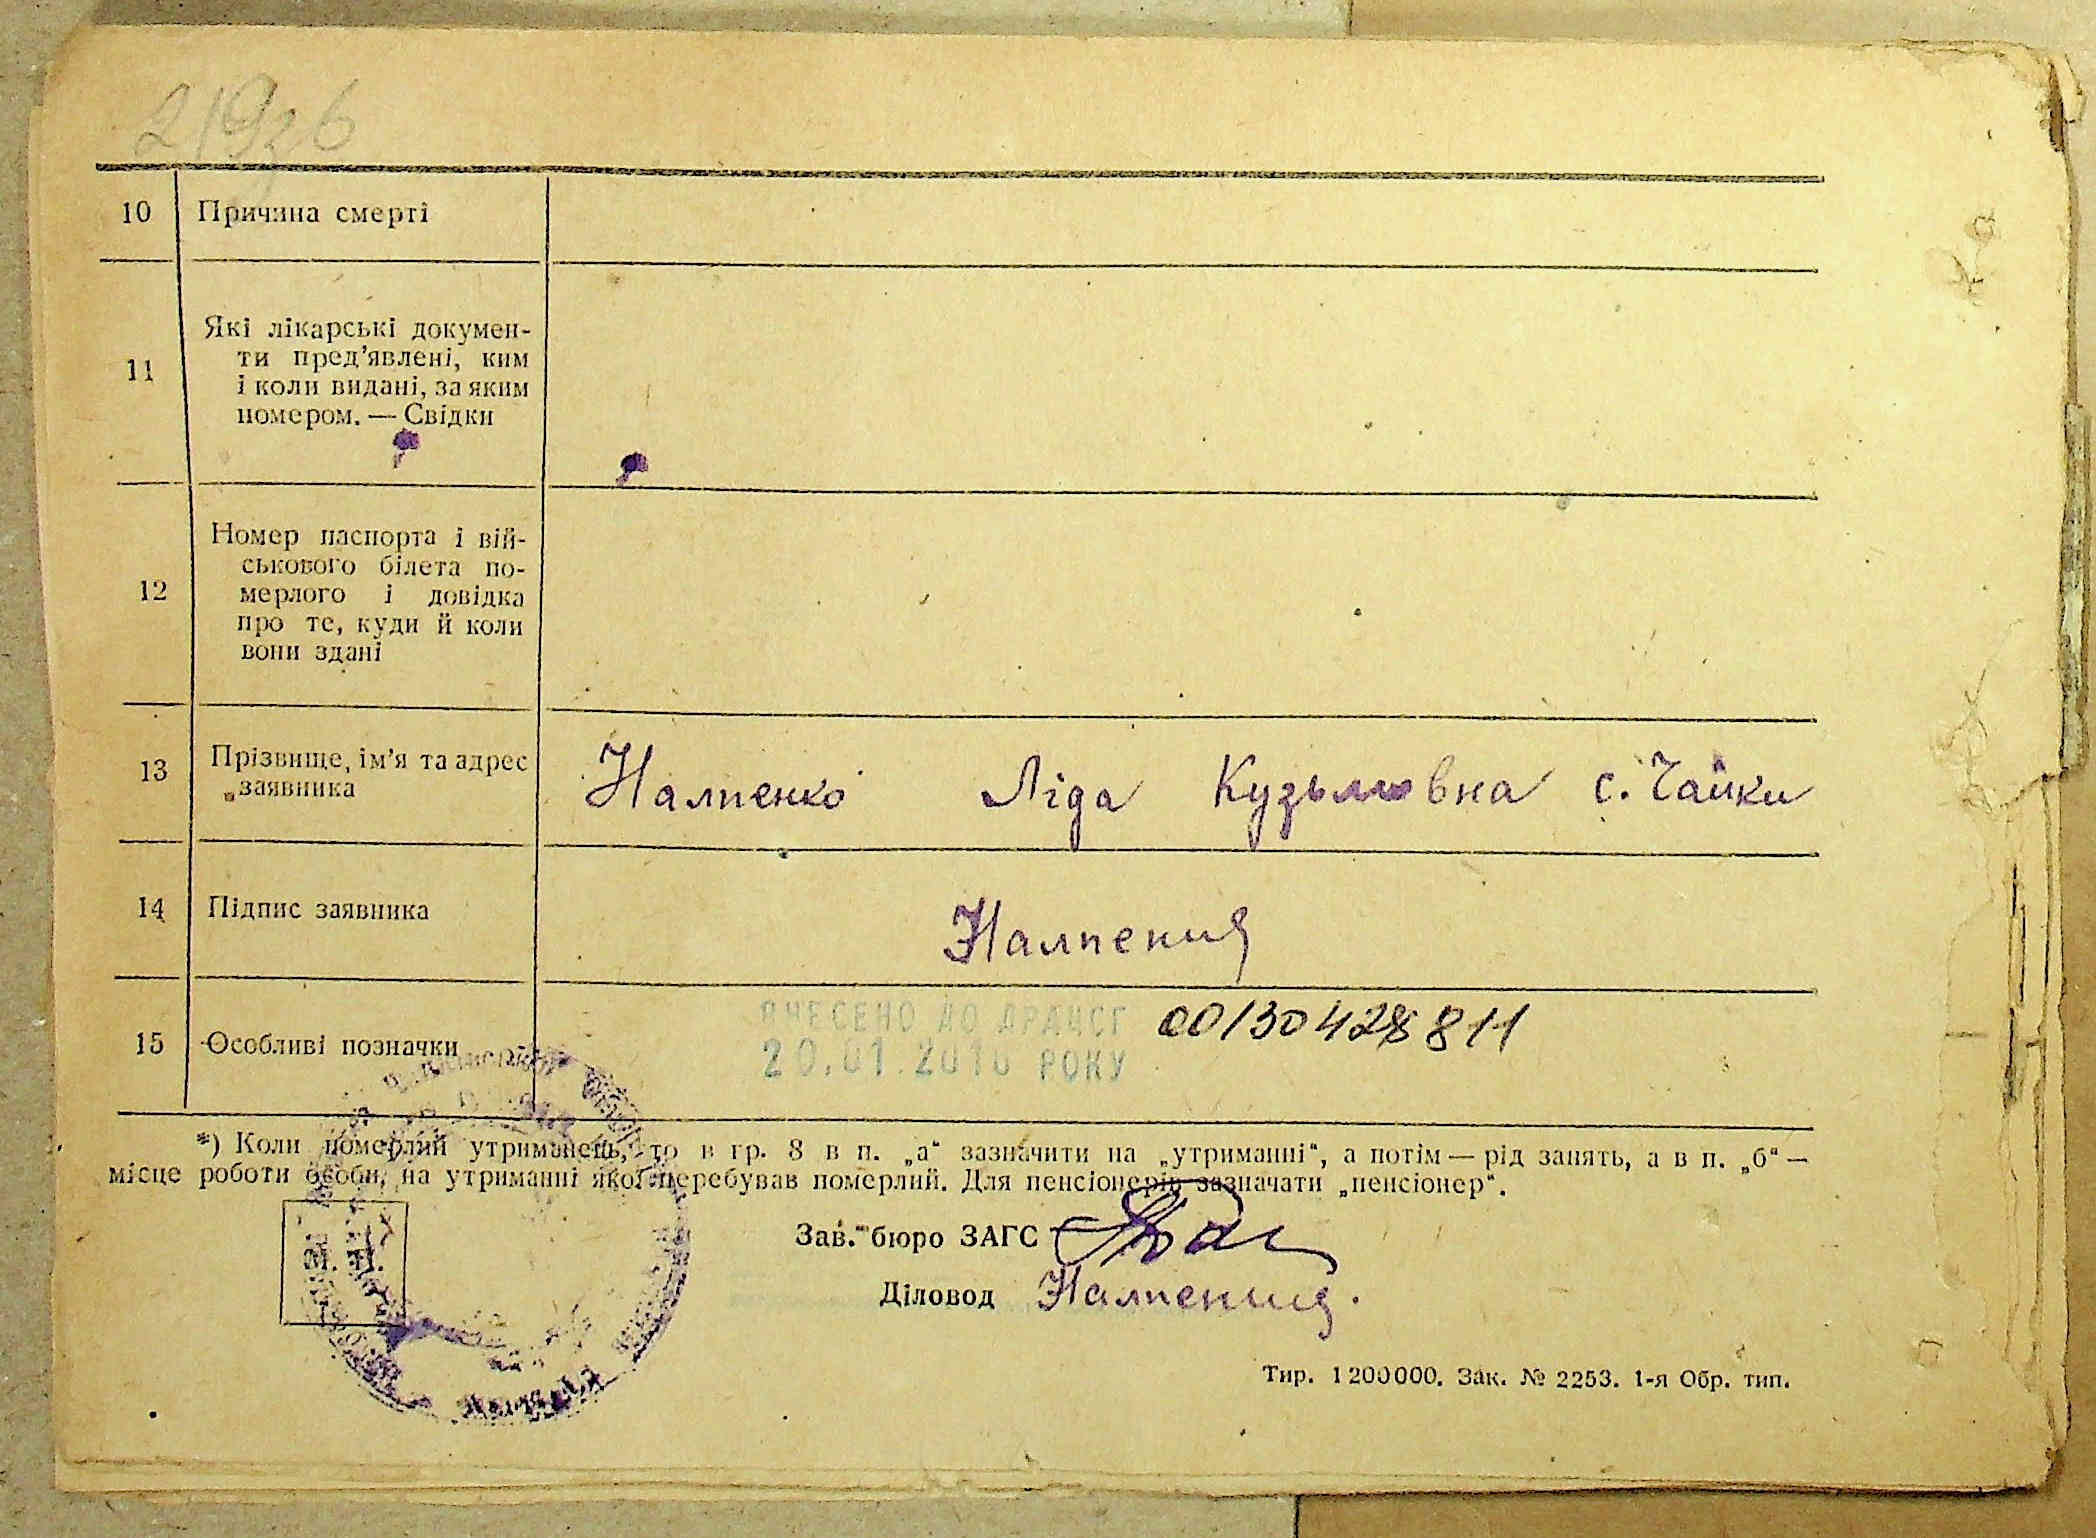 10 Причина смерті
11 Які лікарські докумен-
ти пред’явлені, ким
і коли видані, за яким
номером. — Свідки
12 Номер паспорта і вій-
ськового білета по-
мерлого і довідка
про те, куди й коли
вони здані
13 Прізвище, ім’я та адрес
заявника
Налпенко Ліда Кузьмовна с. Чайки
14 Підпис заявника
15 Особливі позначки
ВНЕСЕНО ДО ДРАЦСГ 00130428811
20.01.2010 РОКУ
*) Коли померлий утриманець, то в гр. 8 в п. „а“ зазначити на „утриманні“, а потім — рід занять, а в п. „б“ —
місце роботи особи, на утриманні якої перебував померлий. Для пенсіонерів зазначати „пенсіонер“.
Зав. бюро ЗАГС
Діловод
М. П.
Тир. 1200000. Зак. № 2253. 1-я Обр. тип.